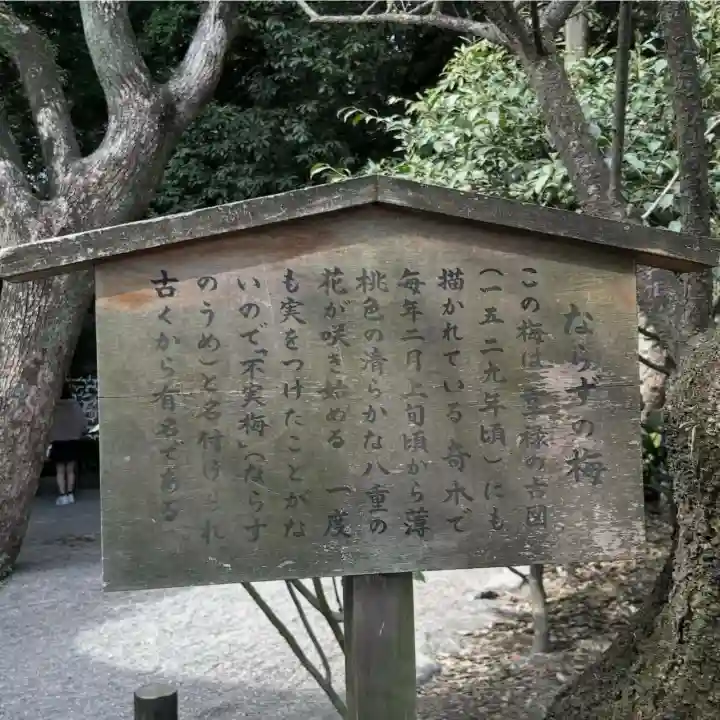 ならずの梅
この梅は享禄の古図
(一五二九年頃)にも
描かれている奇木で
毎年二月上旬頃から薄
桃色の清らかな八重の
花が咲き始める 一度
も実をつけたことがな
いので「不実梅」(ならず
のうめ)と名付けられ
古くから有名である